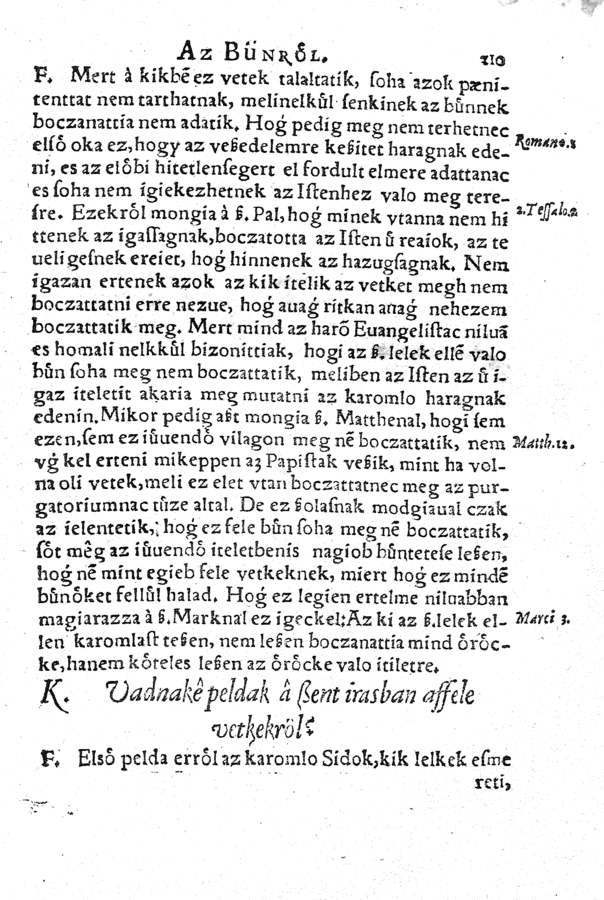 Az Bűnről. 210
F. Mert à kikbē ez vetek talaltatik, ſoha azok pæni-
tenttat nem tarthatnak, melinelkůl ſenkinek az bůnnek
boczanattia nem adatik. Hoǵ pedig meg nem terhetnec
elſó oka ez, hogy az veßedelemre keßitet haragnak ede- Romano. 8
ni, es az elóbi hitetlenſegert el fordult elmere adattanac
es ſoha nem igiekezhetnek az Iſtenhez valo meg tere-
ſre. Ezekról mongia à ß. Pal, hoǵ minek vtanna nem hi 2. Teſſalo. 2
ttenek az igaſſagnak, boczatotta az Iſten ů reaiok, az te
ueligeſnek ereiet, hoǵ hinnenek az hazugſagnak. Nem
igazan ertenek azok az kik itelik az vetket megh nem
boczattatni erre nezue, hoǵ auaǵ ritkan auaǵ nehezem
boczattatik meg. Mert mind az harō Euangeliſtac niluā
es homali nelkkůl bizonittiak, hogi az ß. lelek ellē valo
bůn ſoha meg nem boczattatik, meliben az Iſten az ů i-
gaz iteletit akaria meg mutatni az karomlo haragnak
edenin. Mikor pedig aßt mongia ß. Matthenal, hogi ſem
ezen, ſem ez iůuendó vilagon meg nē boczattatik, nem Matth. 12.
vǵ kel erteni mikeppen az Papiſtak veßik, mint ha vol-
na oli vetek, meli ez elet vtan boczattatnec meg az pur-
gatoriumnac tůze altal. De ez ßolaſnak modgiaual czak
az ielentetik, hoǵ ez fele bůn ſoha meg nē boczattatik,
ſót mêg az iůuendó iteletbenis nagiob bůnteteſe leßen,
hoǵ nē mint egieb fele vetkeknek, miert hoǵ ez mindē
bůnóket fellůl halad. Hoǵ ez legien ertelme niluabban
magiarazza à ß. Marknal ez igeckel: Az ki az ß. lelek el- Marci 3.
len karomlaſt teßen, nem leßen boczanattia mind óróc-
ke, hanem kóteles leßen az órócke valo itiletre.
K. Vadnakê peldak â ßent iraſban affele
vetkekról?
F. Elsó pelda erról az karomlo Sidok, kik lelkek eſme
reti,